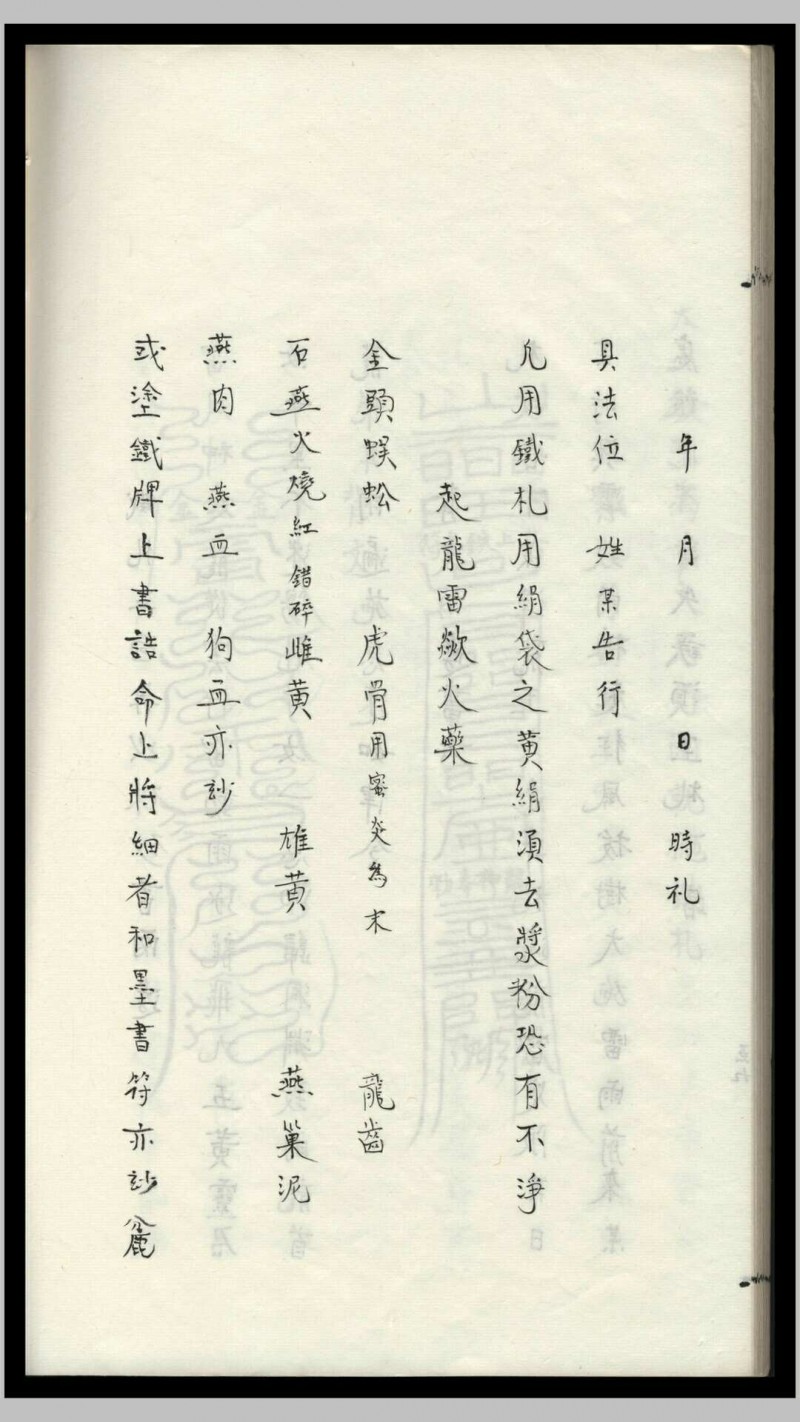 年 月 日 時 礼
具法位 姓某告行
凡用鐵札用絹袋之黄絹須去漿粉恐有不淨
起龍雷歘火藥
金頭蜈蚣 虎骨用蜜炙為末 龍齒
石燕火燒紅錯碎雌黄 雄黄 燕巢泥
燕肉 燕血 狗血亦玅
或塗鐵牌上書誥命上將細者和墨書符亦玅麄